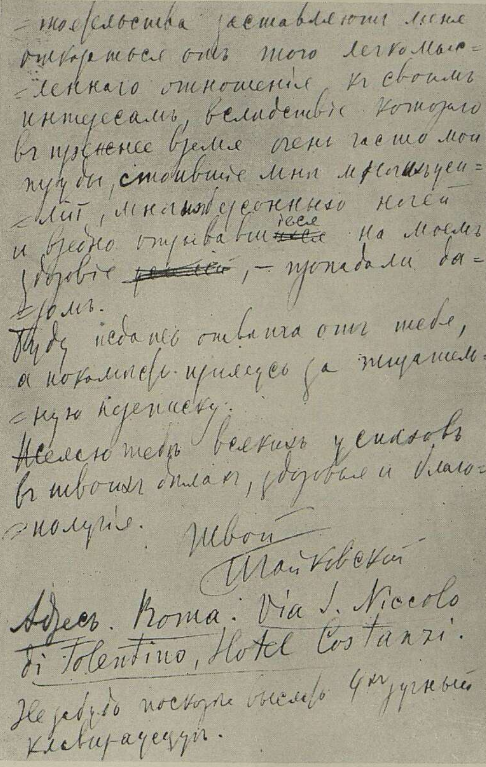 =тоятельства заставляютъ меня
отказаться отъ того легкомыс=
=леннаго отношенія къ своимъ
интересамъ, вслѣдствіе котораго
въ прежнее время очень часто мои
труды, стоившіе мнѣ многихъ уси=
=лій, многихъ безсонныхъ ночей
и вредно отзывавшіеся на моемъ
здоровіе, – пропадали да=
=ромъ.
Буду ждать отвѣта отъ тебя,
а покамѣстъ примусь за тщатель=
=ную переписку.
Желаю тебѣ всякихъ успѣховъ
въ твоихъ дѣлахъ, здоровья и благо=
=получія.
Твой
П Чайковскій
Адресъ. Roma. Via S. Niccolo
di Tolentino, Hotel Costanzi.
Не забудь поскорѣе выслать 4хъ ручный
клавираусцугъ.